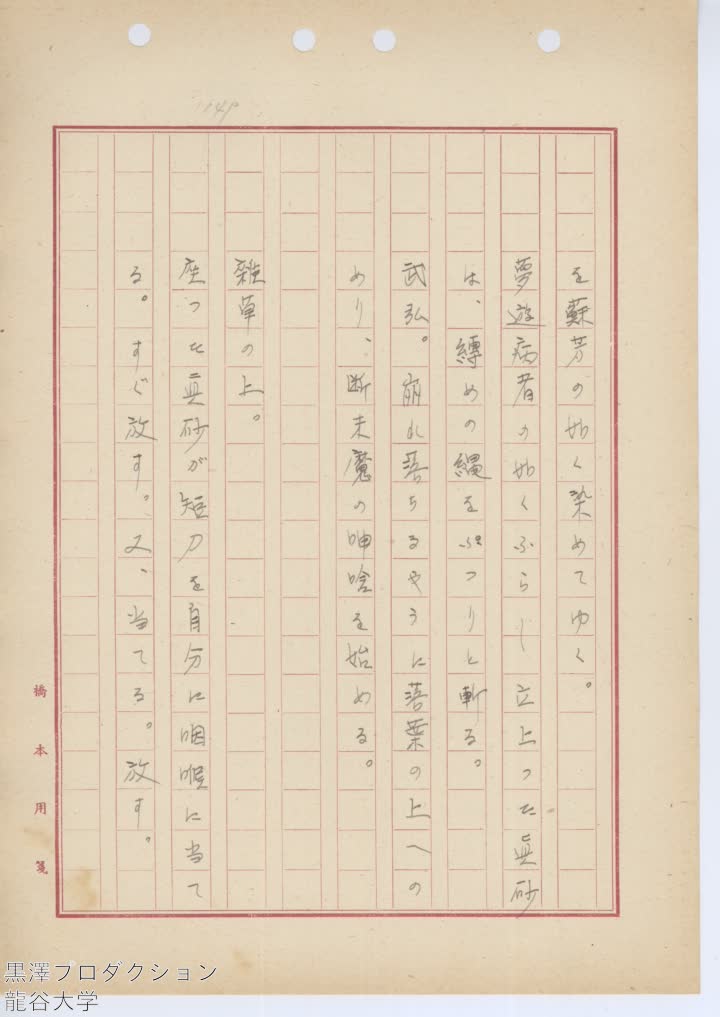 を蘇芳の如く染めてゆく。
夢遊病者の如くふらりと立上つた眞砂
は、縛めの縄をぷつりと斬る。
武弘。崩れ落ちるやうに落葉の上への
めり、断末魔の呻唫を始める。
雑草の上。
座つた眞砂が短刀を自分に咽喉に当て
る。すぐ放す。又、当てる。放す。
橋本用箋
黒澤プロダクション
龍谷大学